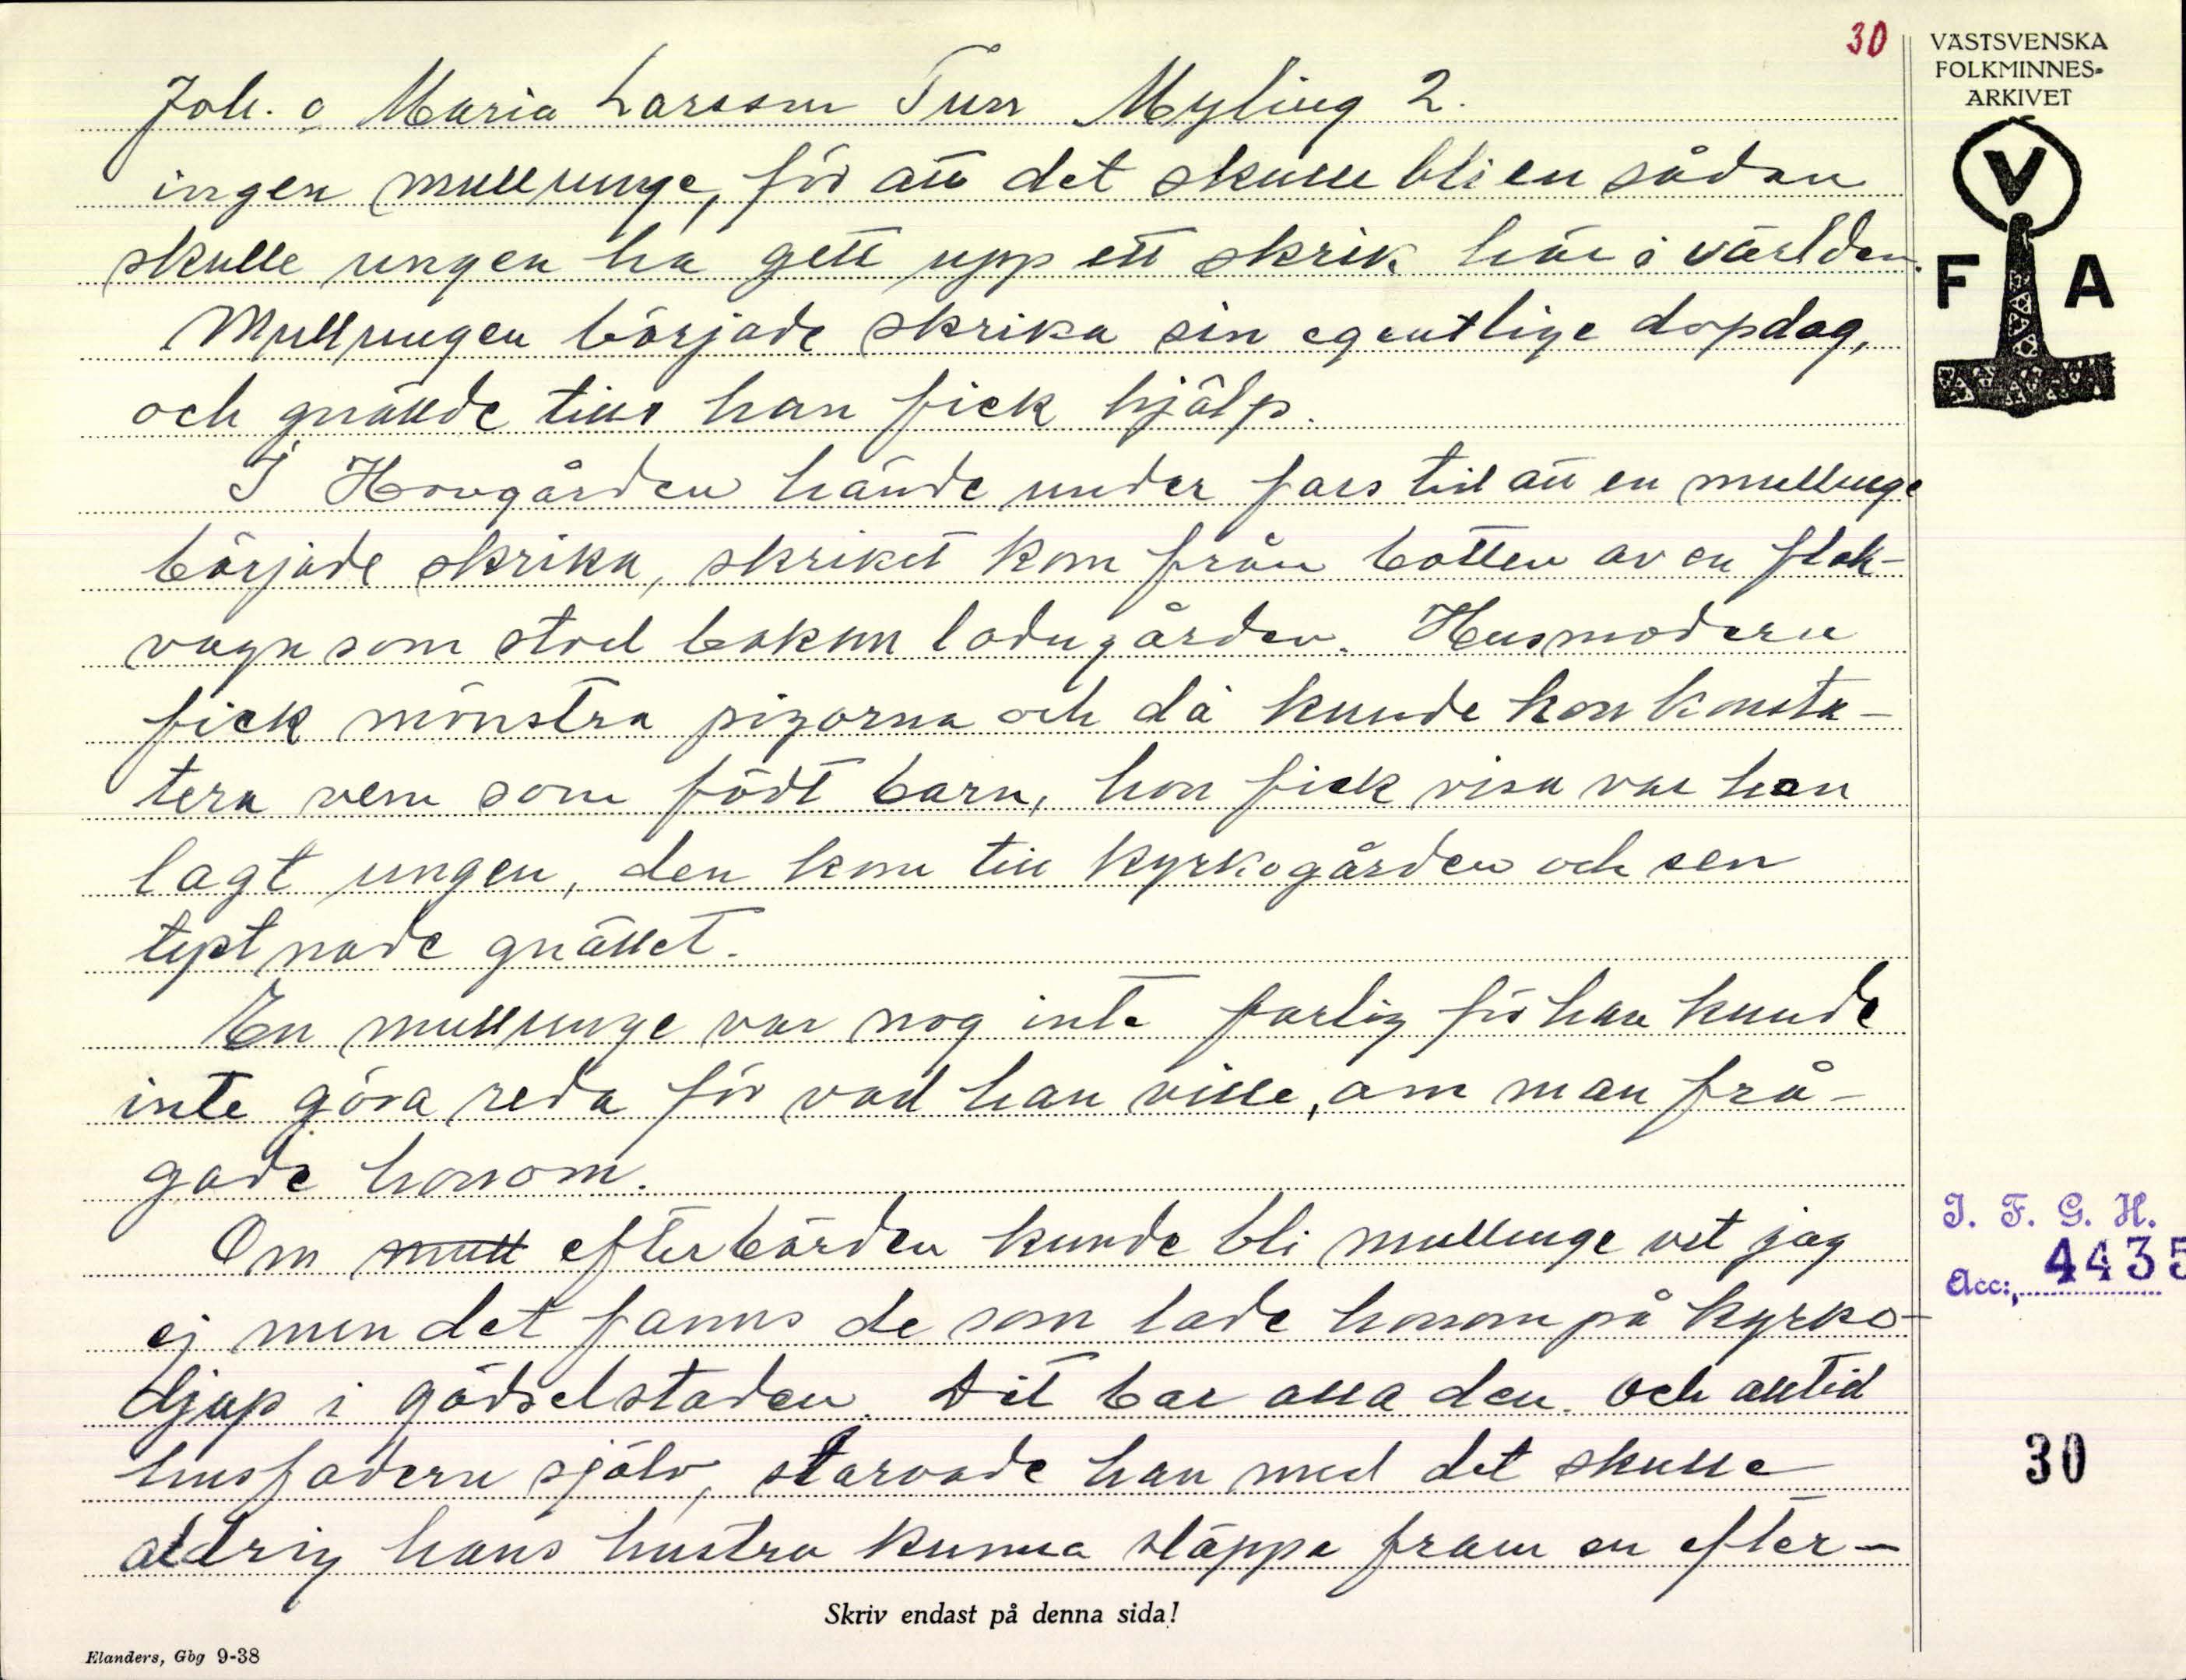 30
VÄSTSVENSKA
FOLKMINNES-
ARKIVET
V
F A
Joh. o Maria Larsson Tun Myling 2.
ingen mullunge, för att det skulle bli en sådan
skulle ungen ha gett upp ett skrik här i världen.
Mullungen började skrika sin egentlige dopdag,
och gnällde tills han fick hjälp.
I Hovgården hände under fars tid att en mullunge
började skrika, skriket kom från botten av en flak-
vagn som stod bakom ladugården. Husmodern
fick mönstra pigorna och då kunde hon konsta-
tera vem som födt barn, hon fick visa var hon
lagt ungen, den kom till kyrkogården och sen
tystnade gnället.
En mullunge var nog inte farlig för han kunde
inte göra reda för vad han ville, om man frå-
gade honom.
Om mull efterbörden kunde bli mullunge vet jag
ej men det fanns de som lade honom på kyrko-
djup i gödselstaden. Dit bar alla den. Och alltid
husfadern själv, slarvade han med det skulle
aldrig hans hustru kunna släppa fram en efter-
I. F. G. H.
Acc:, 4435
30
Skriv endast på denna sida!
Elanders, Gbg 9-38